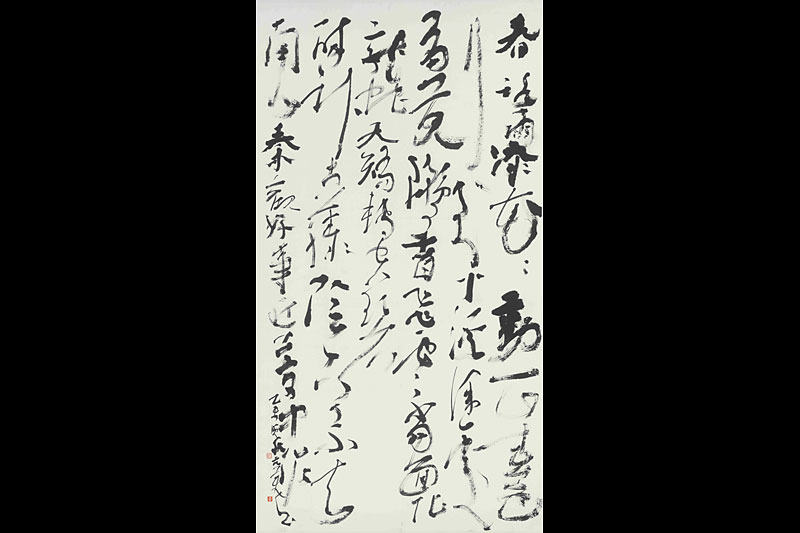 春路雨添花〻動一山春色
行到小溪深處
有黃鸝千百飛雲當面化
龍蛇夭矯轉空碧
醉臥古藤陰下了不知
南北秦觀好事近夢中作
乙未